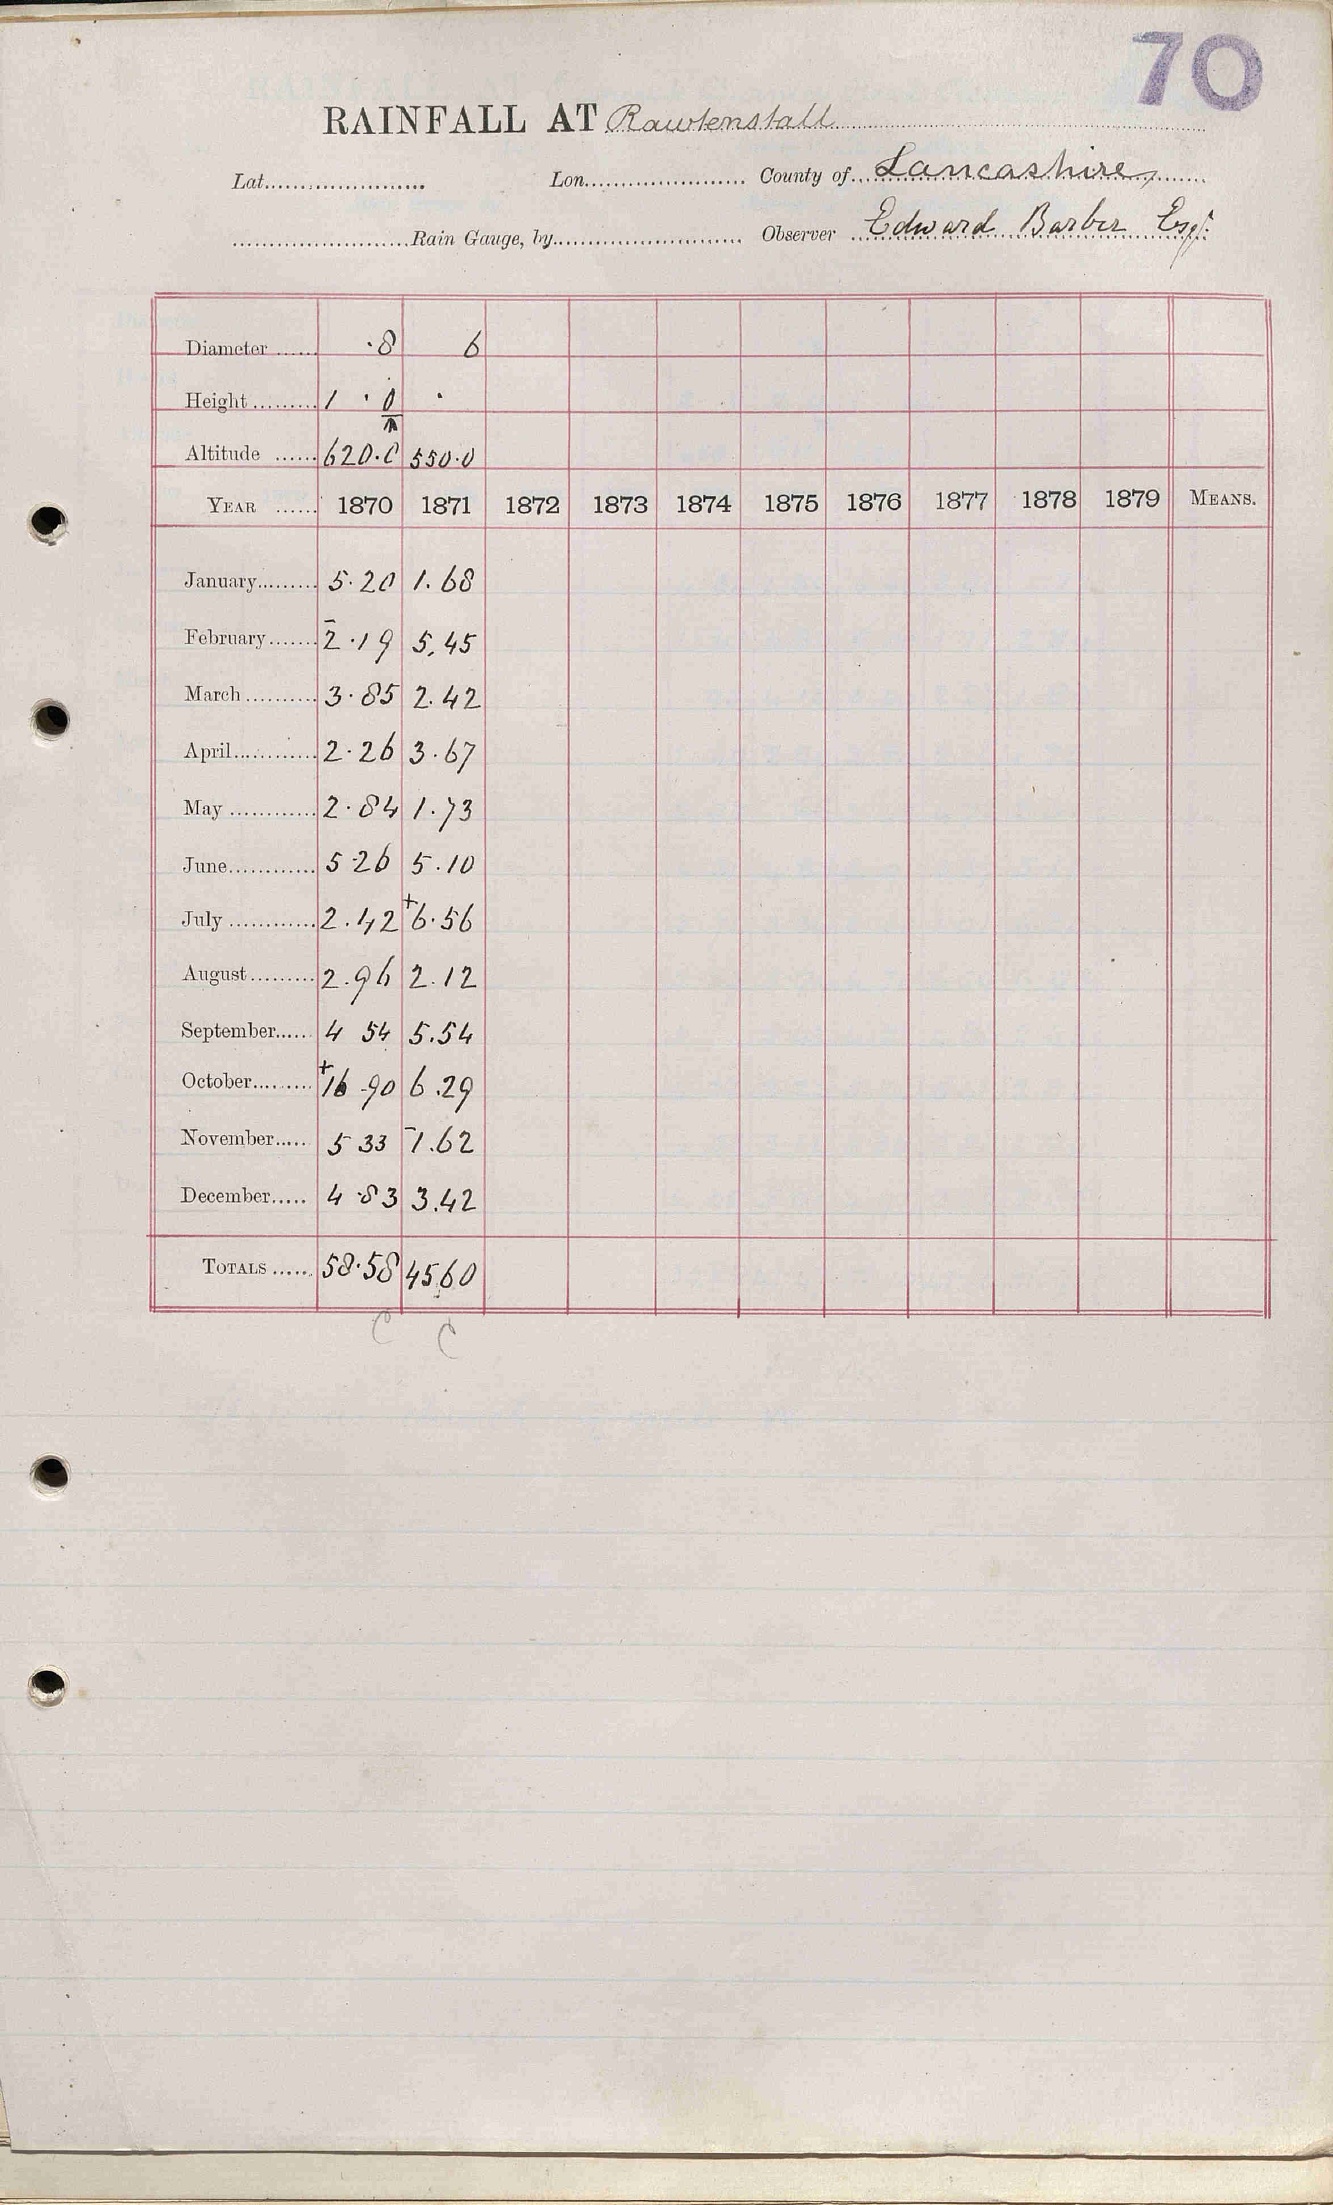 70
RAINFALL AT Rawtenstall
Lat. Lon. County of Lancashire,
Rain Gauge, by Observer Edward Barber Esqr.
Diameter ·8 6
Height 1 · 0 ·
Altitude 620·0 550·0
YEAR 1870 1871 1872 1873 1874 1875 1876 1877 1878 1879 MEANS.
January 5·20 1.68
February 2·19 5.45
March 3·85 2.42
April 2·26 3·67
May 2·84 1·73
June 5 26 5·10
July 2·42 +6·56
August 2.96 2.12
September 4 54 5.54
October +16 90 6.29
November 5 33 -1.62
December 4 83 3.42
TOTALS 58·58 45.60
C C